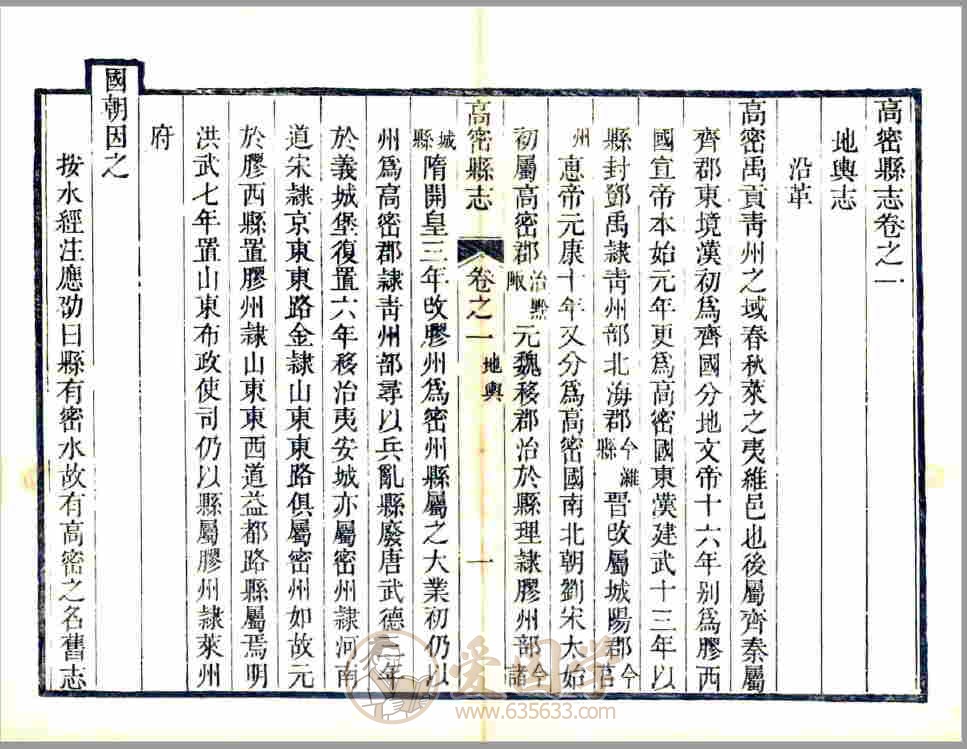 高密縣志卷之一
地輿志
沿革
高密禹貢靑州之域春秋萊之夷維邑也後屬齊秦屬
齊郡東境漢初爲齊國分地文帝十六年別爲膠西
國宣帝本始元年更爲高密國東漢建武十三年以
縣封鄧禹隸靑州部北海郡今濰縣晉改屬城陽郡今莒
州惠帝元康十年又分爲高密國南北朝劉宋太始
初屬高密郡治黔陬元魏移郡治於縣理隸膠州部今諸
高密縣志 卷之一 地輿 一
城縣隋開皇三年改膠州爲密州縣屬之大業初仍以
州爲高密郡隸靑州部尋以兵亂縣廢唐武德三年
於義城堡復置六年移治夷安城亦屬密州隸河南
道宋隸京東東路金隸山東東路俱屬密州如故元
於膠西縣置膠州隸山東東西道益都路縣屬焉明
洪武七年置山東布政使司仍以縣屬膠州隸萊州
府
國朝因之
按水經注應劭曰縣有密水故有高密之名舊志
爱国学
www.635633.com